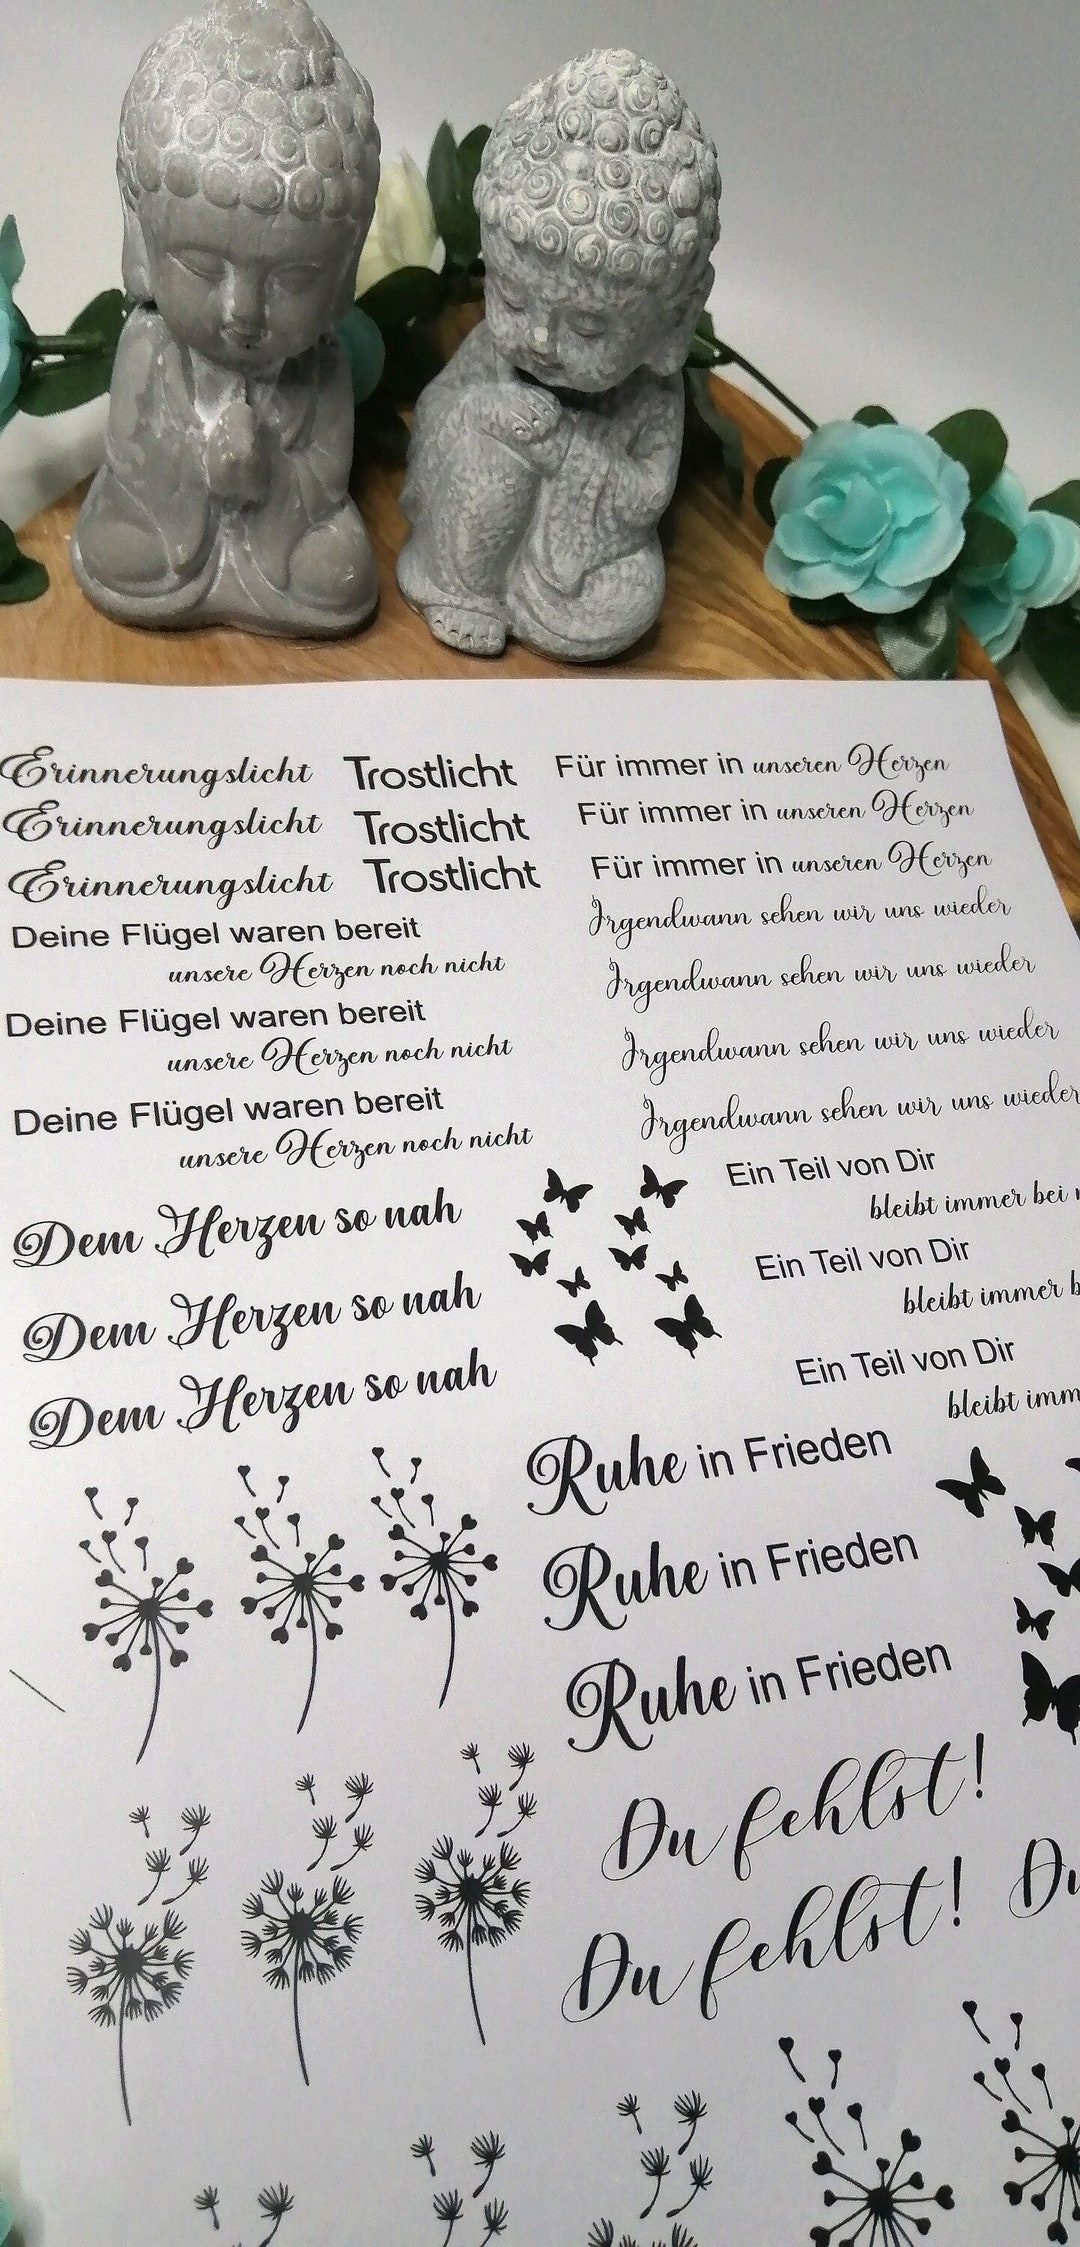 Erinnerungslicht Trostlicht Für immer in unseren Herzen
Erinnerungslicht Trostlicht Für immer in unseren Herzen
Erinnerungslicht Trostlicht Für immer in unseren Herzen
Deine Flügel waren bereit
unsere Herzen noch nicht
Deine Flügel waren bereit
unsere Herzen noch nicht
Deine Flügel waren bereit
unsere Herzen noch nicht
Irgendwann sehen wir uns wieder
Irgendwann sehen wir uns wieder
Irgendwann sehen wir uns wieder
Irgendwann sehen wir uns wieder
Dem Herzen so nah
Dem Herzen so nah
Dem Herzen so nah
Ein Teil von Dir
bleibt immer bei
Ein Teil von Dir
bleibt immer
Ein Teil von Dir
bleibt
Ruhe in Frieden
Ruhe in Frieden
Ruhe in Frieden
Du fehlst!
Du fehlst! Du